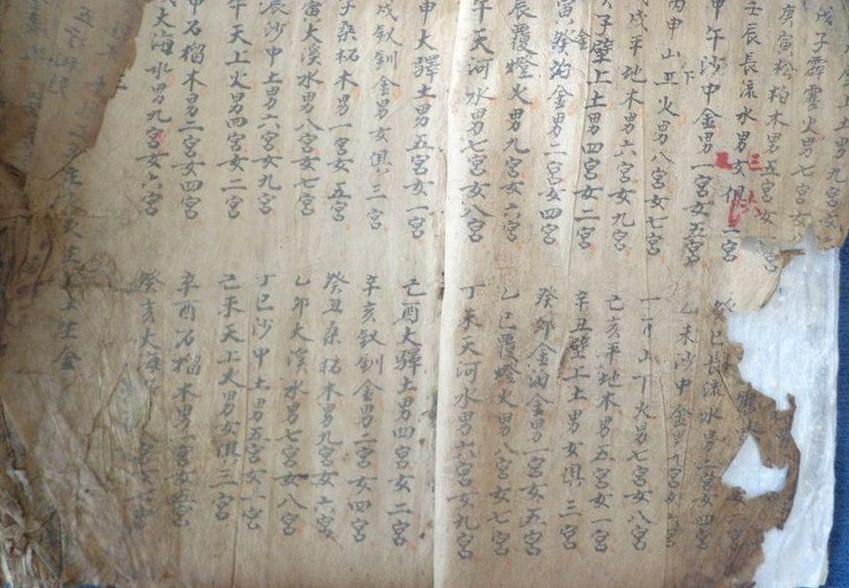 上土男九宮女
戊子霹靂火男七宮女
庚寅松柏木男五宮女宮
壬辰長流水男女俱三宮 巳長流水男二宮女四宮
甲午沙中金男一宮女五宮 乙未沙中金男九宮
丙申山下火男八宮女七宮 山下火男七宮女八宮
戊戌平地木男六宮女九宮 己亥平地木男五宮女一宮
子壁上土男四宮女二宮 辛丑壁上土男女俱三宮
寅金泊金男二宮女四宮 癸卯金泊金男一宮女五宮
辰覆燈火男九宮女六宮 乙巳覆燈火男八宮女七宮
午天河水男七宮女八宮 丁未天河水男六宮女九宮
申大驛土男五宮女一宮 己酉大驛土男四宮女二宮
戌釵釧金男女俱三宮 辛亥釵釧金男二宮女四宮
子桑柘木男一宮女五宮 癸丑桑柘木男九宮女六宮
寅大溪水男八宮女七宮 乙卯大溪水男七宮女八宮
辰沙中土男六宮女九宮 丁巳沙中土男五宮女一宮
午天上火男四宮女二宮 己未天上火男女俱三宮
申石榴木男二宮女四宮 辛酉石榴木男一宮女五宮
大海水男九宮女六宮 癸亥大海宮女